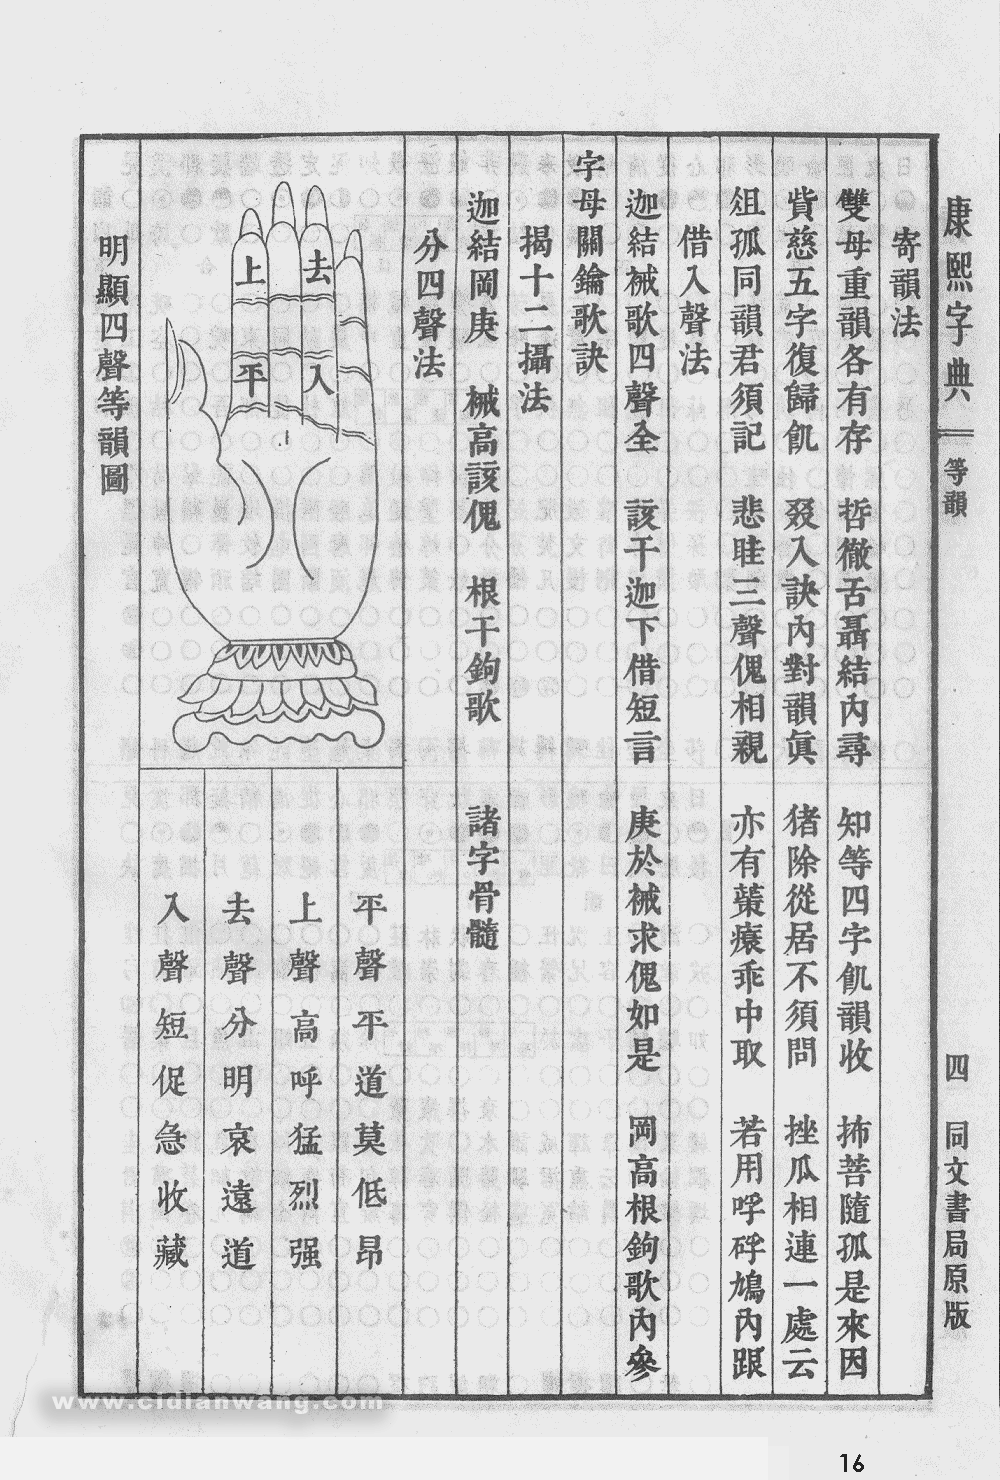 康熙字典 等韻 四 同文書局原版
寄韻法
雙母重韻各有存 哲徹舌聶結內尋 知等四字飢韻收 抪菩隨孤是來因
貲慈五字復歸飢 㕛入訣內對韻眞 猪除從居不須問 挫瓜相連一處云
俎孤同韻君須記 悲眭三聲傀相親 亦有蘃瘝乖中取 若用呼砰鳩內跟
借入聲法
迦結祴歌四聲全 該干迦下借短言 庚於祴求傀如是 岡高根鉤歌內參
字母關鑰歌訣
揭十二攝法
迦結岡庚 祴高該傀 根干鉤歌 諸字骨髓
分四聲法
上
去
平
入
平聲平道莫低昂
上聲高呼猛烈强
去聲分明哀遠道
入聲短促急收藏
明顯四聲等韻圖
www.cidianwang.com
16